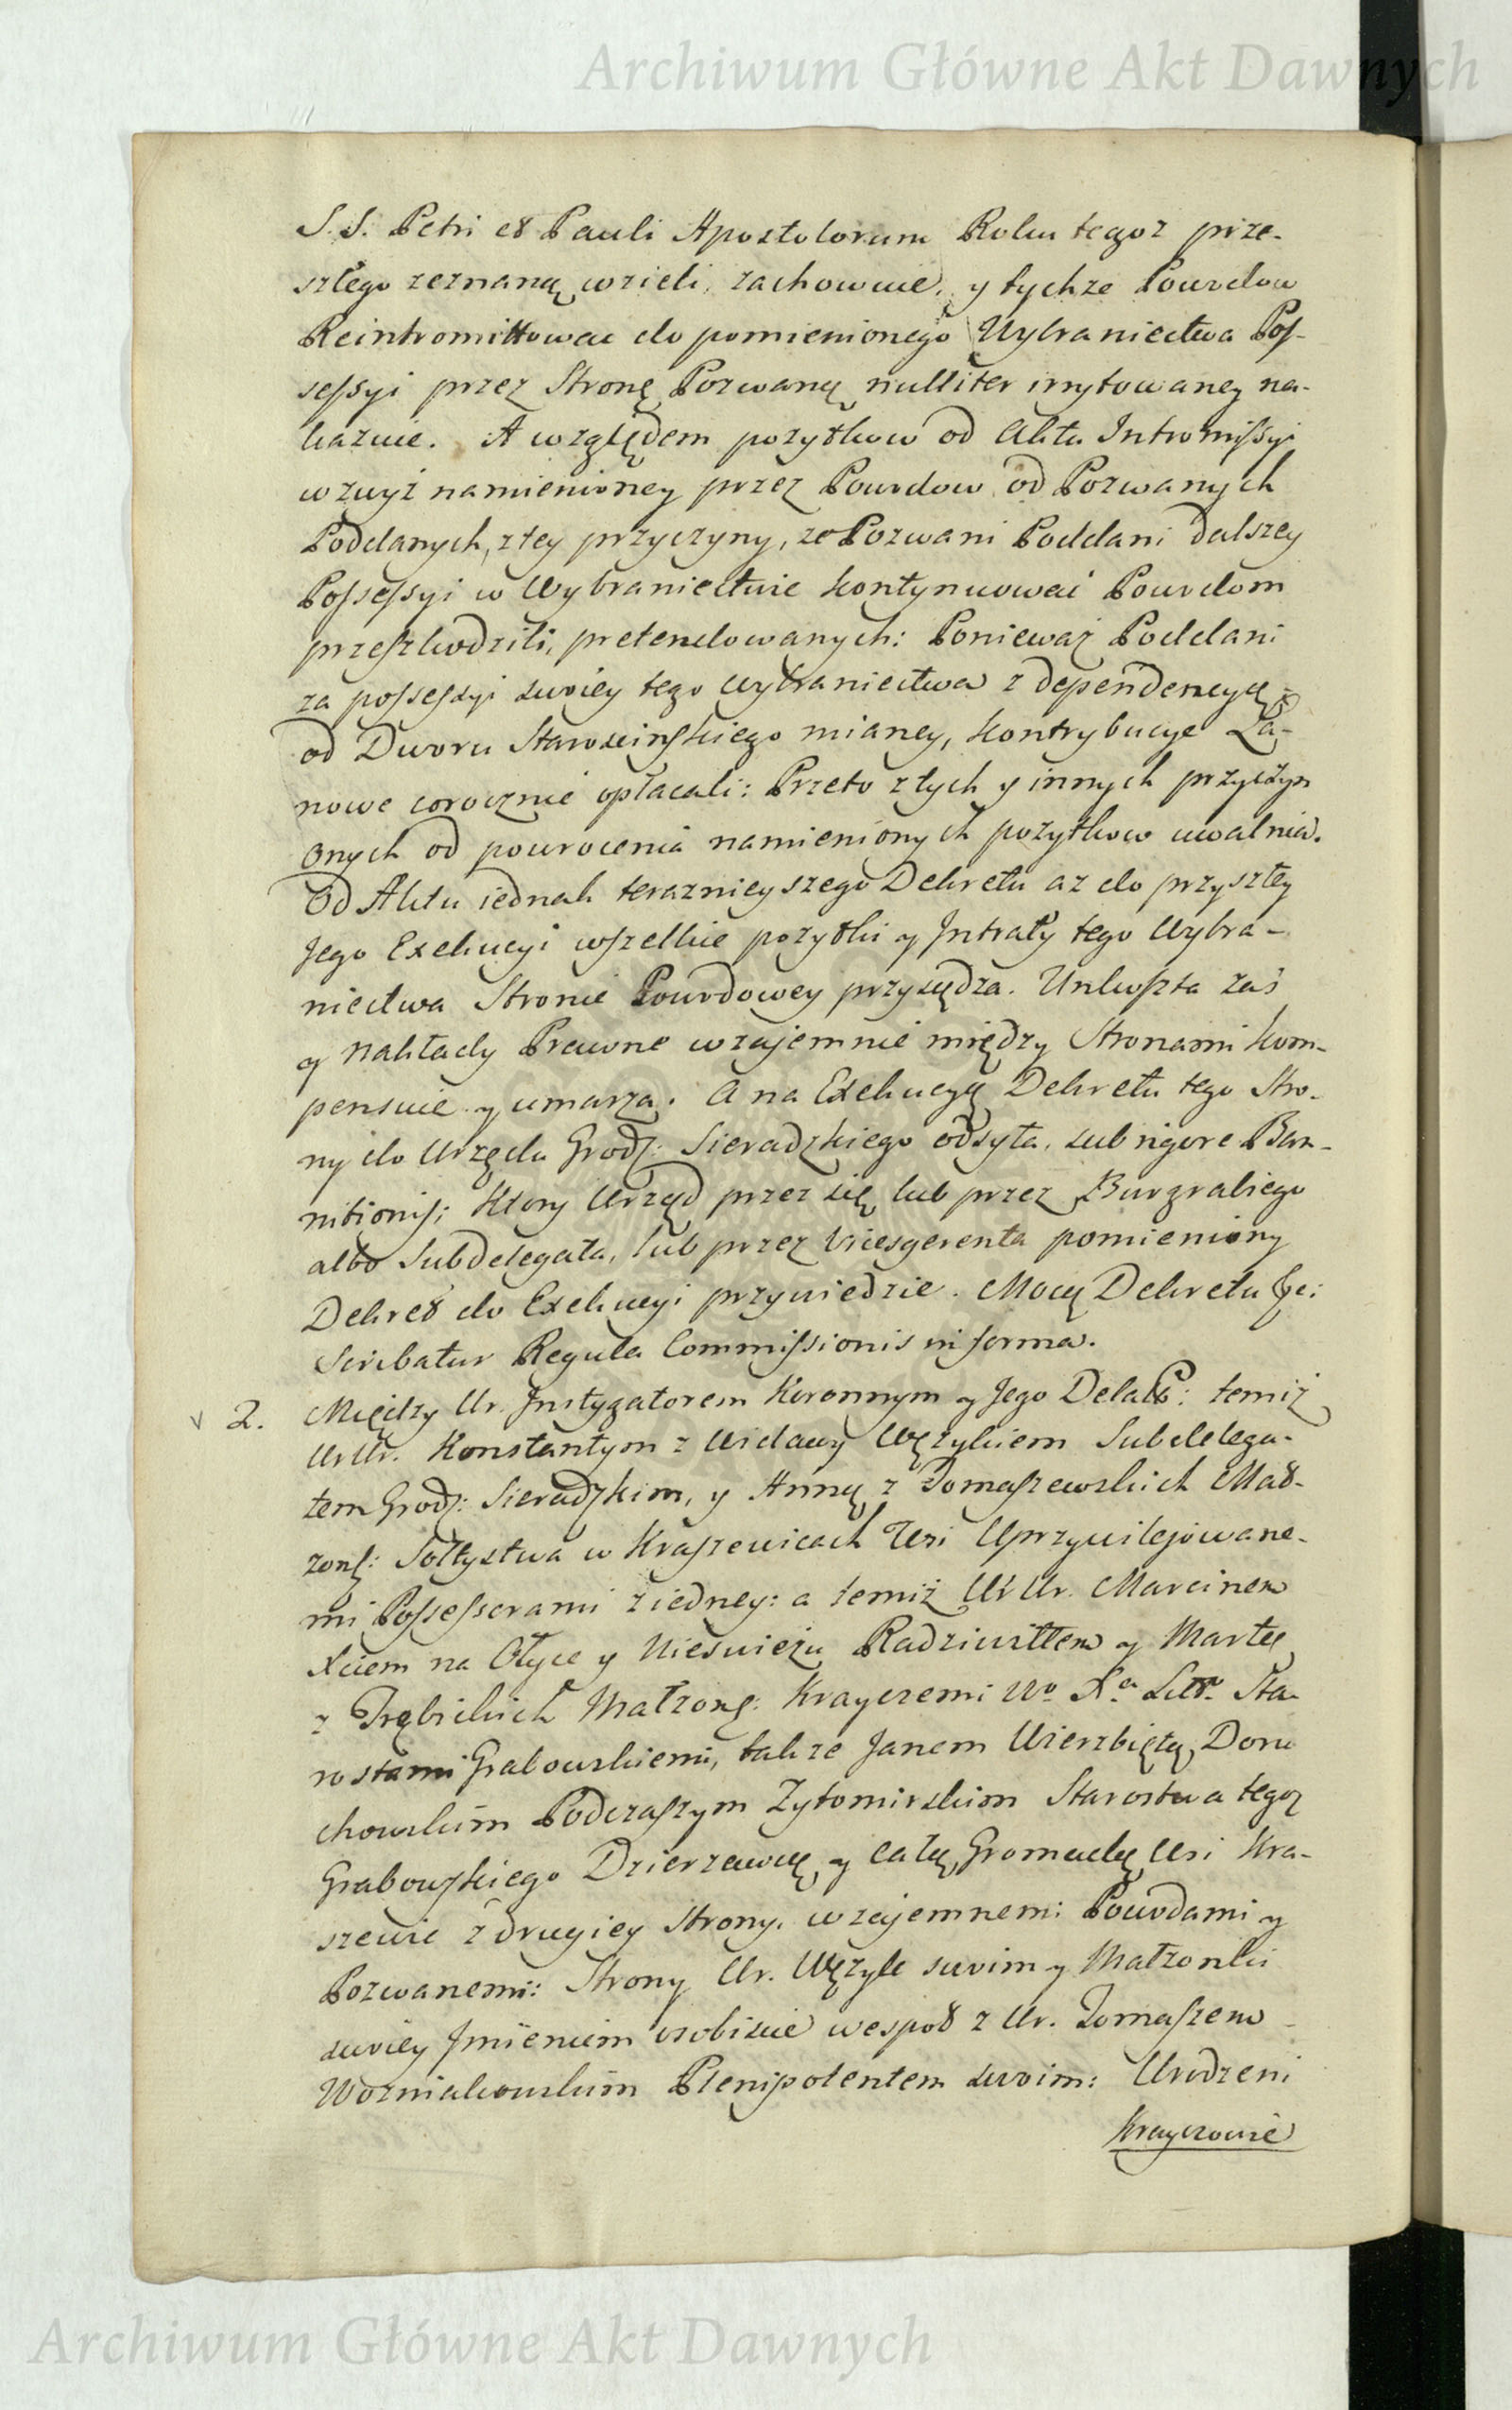 Archiwum Główne Akt Dawnych
S. S. Petri et Pauli Apostolorum Roku tegoz prze-
szłego zeznaną wzieli, zachowuie, y tychze Powodow
Reintromittowac do pomienionego Wybraniectwa Pos-
sessyi przez Stronę Pozwaną nulliter irrytowaney na-
kazuie. A względem pozytkow od Aktu Intromissyi
wzwyż namienioney przez Powodow od Pozwanych
Poddanych, z tey przyczyny, ze Pozwani Poddani dalszey
Possessyi w Wybraniectwie kontynuować Powodom
przeszkodzili, pretendowanych: Ponieważ Poddani
za possessyi swoiey tego Wybraniectwa z dependencyą
od Dworu Starościnskiego mianey, kontrybucye Ła-
nowe corocznie opłacali: Przeto z tych y innych przyczyn
onych od powrocenia namienionych pozytkow uwalnia.
Od Aktu iednak teraznieyszego Dekretu az do przyszłey
Jego Exekucyi wszelkie pozytki y Intraty tego Wybra-
niectwa Stronie Powodowey przysądza. Unkoszta zaś
y nakłady Prawne wzajemnie między Stronami kom-
pensuie y umarza. A na Exekucyą Dekretu tego Stro-
ny do Urzędu Grodz: Sieradzkiego odsyła, sub rigore Ban-
nitionis; Ktory Urząd przez się lub przez Burgrabiego
albo Subdelegata, lub przez Vicesgerenta pomieniony
Dekret do Exekucyi przywiedzie. Mocą Dekretu &c:
Scribatur Regula Commissionis in forma.
2. Między Ur. Instygatorem Koronnym y Jego Delat: temiż
Ur Ur. Konstantym z Widawy Wężykiem Subdelega-
tem Grodz: Sieradzkim, y Anną z Tomaszewskich Mał-
zonk: Sołtystwa w Kraszewicach Wsi Uprzywilejowane-
mi Possessorami z iedney: a temiż Ur Ur. Marcinem
Xciem na Ołyce y Nieswieżu Radziwiłłem y Martą
z Trębickich Małzonk: Krayczemi Wo Xa Litt. Sta-
rostami Grabowskiemi, takze Janem Wierzbiętą Doru
chowskim Podczaszym Zytomirskim Starostwa tegoz
Grabowskiego Dzierzawcą, y całą Gromadą Wsi Kra-
szewic z drugiey strony, wzajemnemi Powodami y
Pozwanemi: Strony Ur. Wężyk swoim y Małzonki
swoiey Jmieniem osobiscie wespoł z Ur. Tomaszem
Wozniakowskim Plenipotentem swoim: Urodzeni
Krayczowie
Archiwum Główne Akt Dawnych